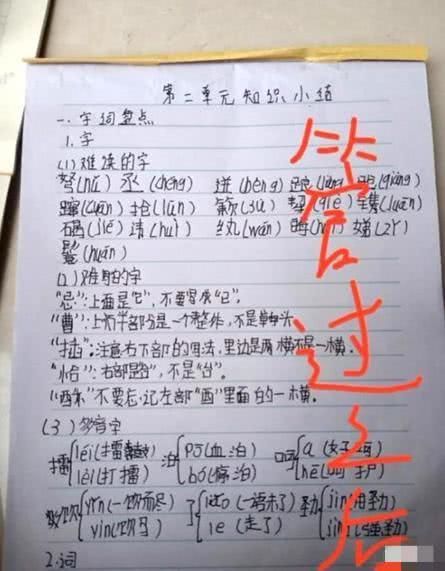 第二单元知识小结
一.字词盘点
1.字
(1)难读的字
弩(nǔ) 丞(chéng) 迸(bèng)
蹿(cuān) 抡(lūn)
碣(jié) 讳(huì) 纨(wán) 晦(huì) 姊(zǐ)
鬟(huán)
(2)难写的字
"忌":上面是"己",不要写成"已"。
"曹":上部分是一个整体,不是草头
注意右下部的写法,里边是两横不是一横。
"恰":右部是合,不是"台"。
不要忘记左部"酉"里面的一横。
(3)多音字
擂 léi(擂鼓) 泊 pō(血泊) 呵 a
lèi(打擂) bó(停泊) hē(呵护)
饮 yǐn(一饮而尽) 了 liǎo(一语未了) 劲 jìn
yìn(饮马) le(走了) jìng(强劲)
2.词
答应过之后